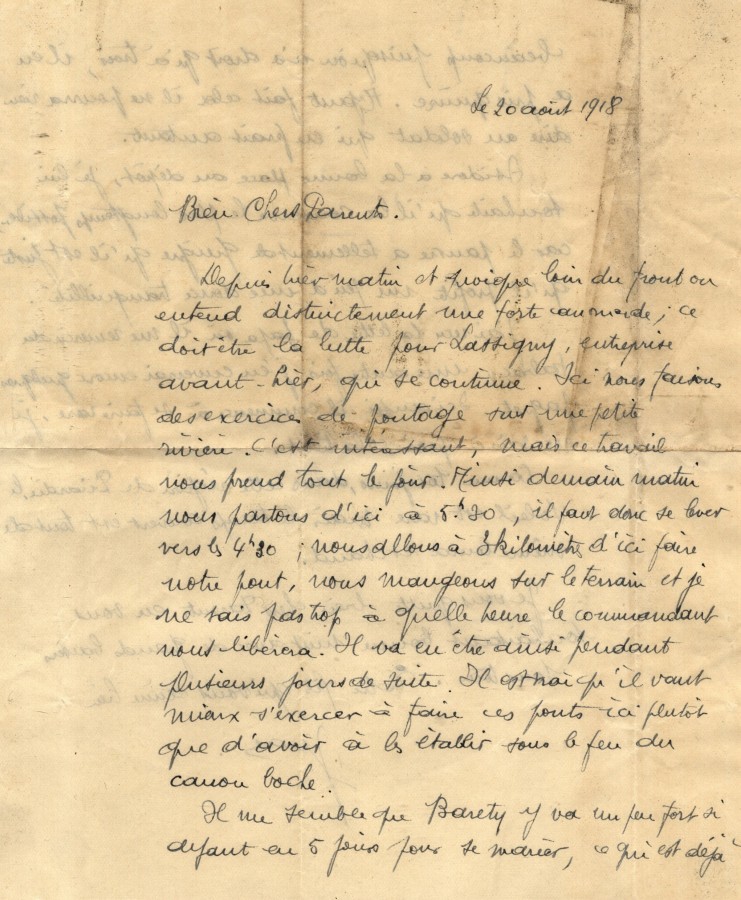 Le 20 août 1918
Bien Chers Parents.
Depuis hier matin et quoique loin du front on
entend distinctement une forte canonnade; ce
doit être la lutte pour Lassigny, entreprise
avant-hier, qui se continue. Ici nous faisons
des exercices de pontage sur une petite
rivière. C'est intéressant, mais ce travail
nous prend tout le jour. Ainsi demain matin
nous partons d'ici à 5h30, il faut donc se lever
vers les 4h30; nous allons à 3 kilomètres d'ici faire
notre pont, nous mangeons sur le terrain et je
ne sais pas trop à quelle heure le commandant
nous libèrera. Il va en être ainsi pendant
plusieurs jours de suite. Il est vrai qu'il vaut
mieux s'exercer à faire ces ponts ici plutôt
que d'avoir à les établir sous le feu du
canon boche.
Il me semble que Barety y va un peu fort si
ayant eu 5 jours pour se marier, ce qui est déjà